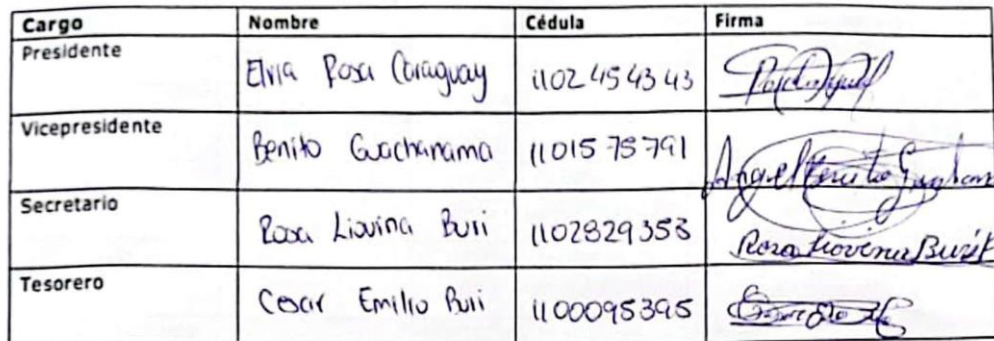 Cargo Nombre Cédula Firma
Presidente Elvia Rosa Caraguay 1102454343
Vicepresidente Benito Guachanama 1101575791 Angel Benito
Secretario Rosa Liovina Buri 1102829358 Rosa Liovina Buri
Tesorero Cesar Emilio Buri 1100095395